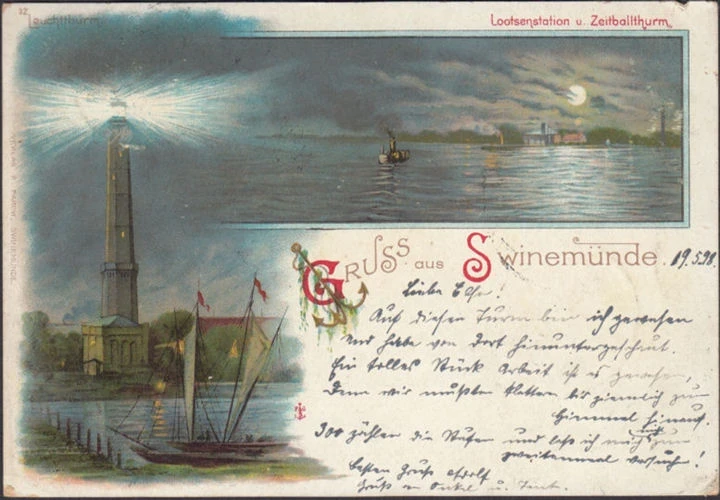 32
Leuchtthurm.
Lootsenstation u. Zeitballthurm.
Gruss aus Swinemünde 19.5.98.
Liebe Else!
Auf diesen Turm bin ich gewesen
und habe von dort hinuntergeschaut.
Ein tolles Stück Arbeit ist es gewesen,
denn wir mußten klettern bis ziemlich zum
Himmel hinauf.
300 zählen die Stufen und laß ich mich zum
zweitenmal versuch!
besten Gruß Adolf
Gruß an Onkel u. Tante.